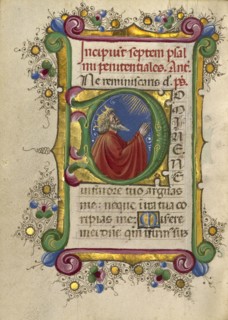 Incipiunt septem psal
mi penitentiales. Ant.
Ne reminiscaris d. ps.
DOMINE NE
in furore tuo arguas
me: neque in ira tua co
rripias me: Misere
mei dne qm infirmus